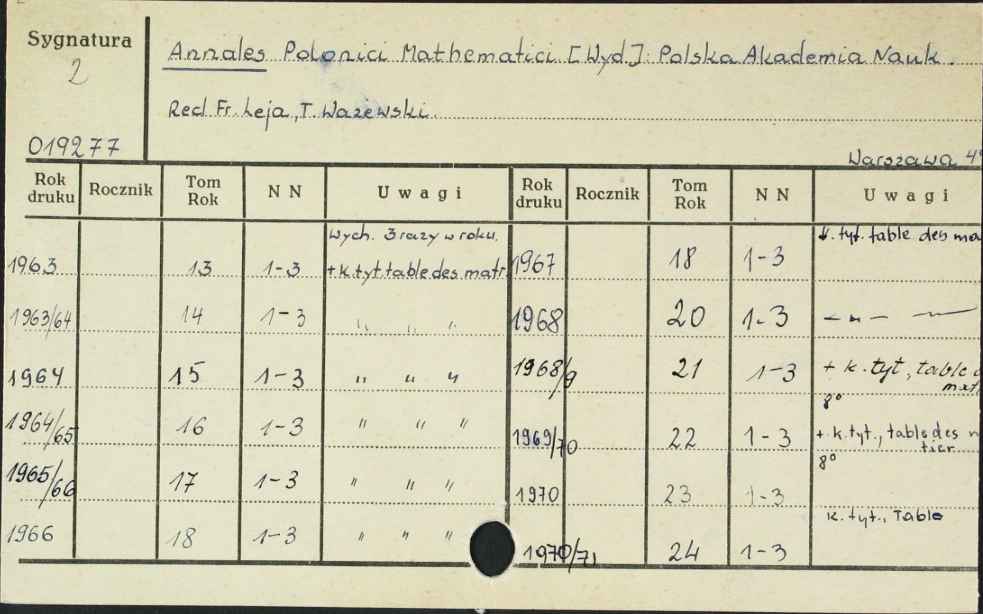 Sygnatura
2
Annales Polonici Mathematici [Wyd.]: Polska Akademia Nauk.
Red Fr. Leja, T. Ważewski.
019277
Warszawa
Rok druku Rocznik Tom Rok N N Uwagi Rok druku Rocznik Tom Rok N N Uwagi
Wych. 3 razy w roku.
1963 13 1-3 + k. tyt. table des matr. 1967 18 1-3 k. tyt. table des
1963/64 14 1-3 " " " 1968 20 1-3 — " — —
1964 15 1-3 " " " 1968/9 21 1-3 + k. tyt, table
8°
1964/65 16 1-3 " " " 1969/70 22 1-3 + k. tyt., table des
tier.
8°
1965/66 17 1-3 " " " 1970 23 1-3
k. tyt., Table
1966 18 1-3 " " " 1970/71 24 1-3